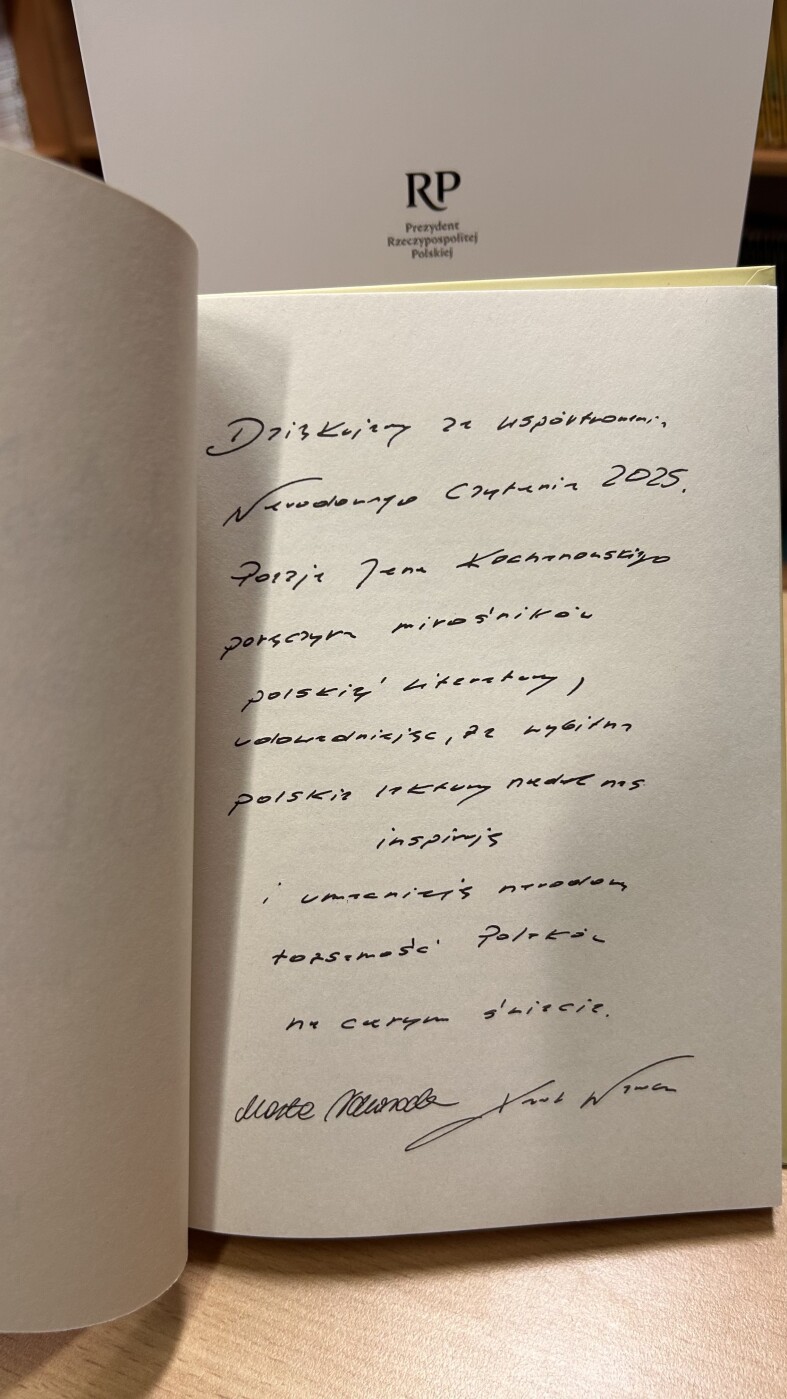 RP
Prezydent
Rzeczypospolitej
Polskiej
Dziękujemy za współtworzenie
Narodowego Czytania 2025.
Poezja Jana Kochanowskiego
połączyła miłośników
polskiej literatury,
udowadniając, że wybitne
polskie lektury nadal nas
inspirują
i umacniają narodową
tożsamość Polaków
na całym świecie.
Marta Nawrocka